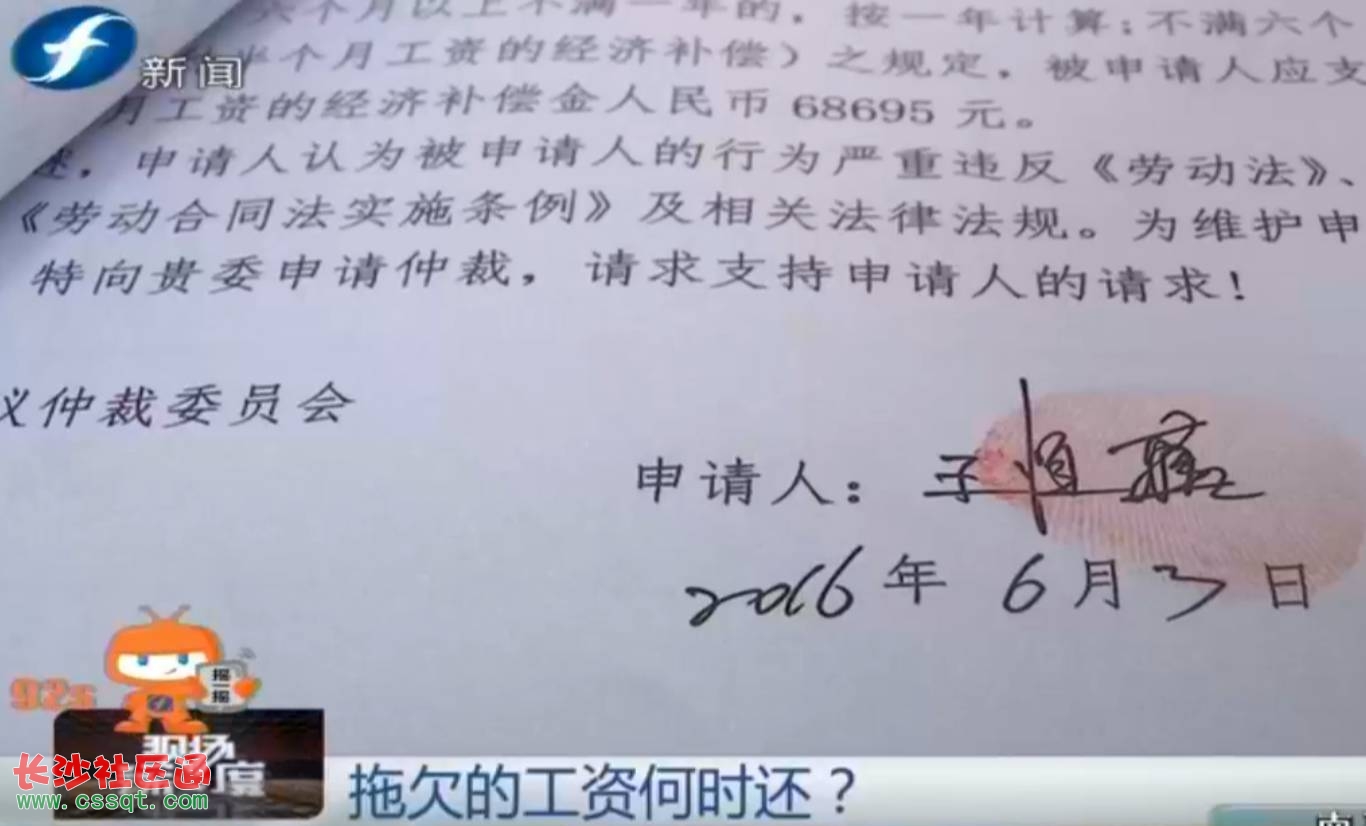 六个月以上不满一年的，按一年计算；不满六个
半个月工资的经济补偿）之规定，被申请人应支
月工资的经济补偿金人民币 68695 元。
述，申请人认为被申请人的行为严重违反《劳动法》、
《劳动合同法实施条例》及相关法律法规。为维护申
特向贵委申请仲裁，请求支持申请人的请求！
议仲裁委员会
申请人：
2016 年 6 月 3 日
新闻
摇一摇
92s
现场
长沙社区通
www.cssqt.com
拖欠的工资何时还？